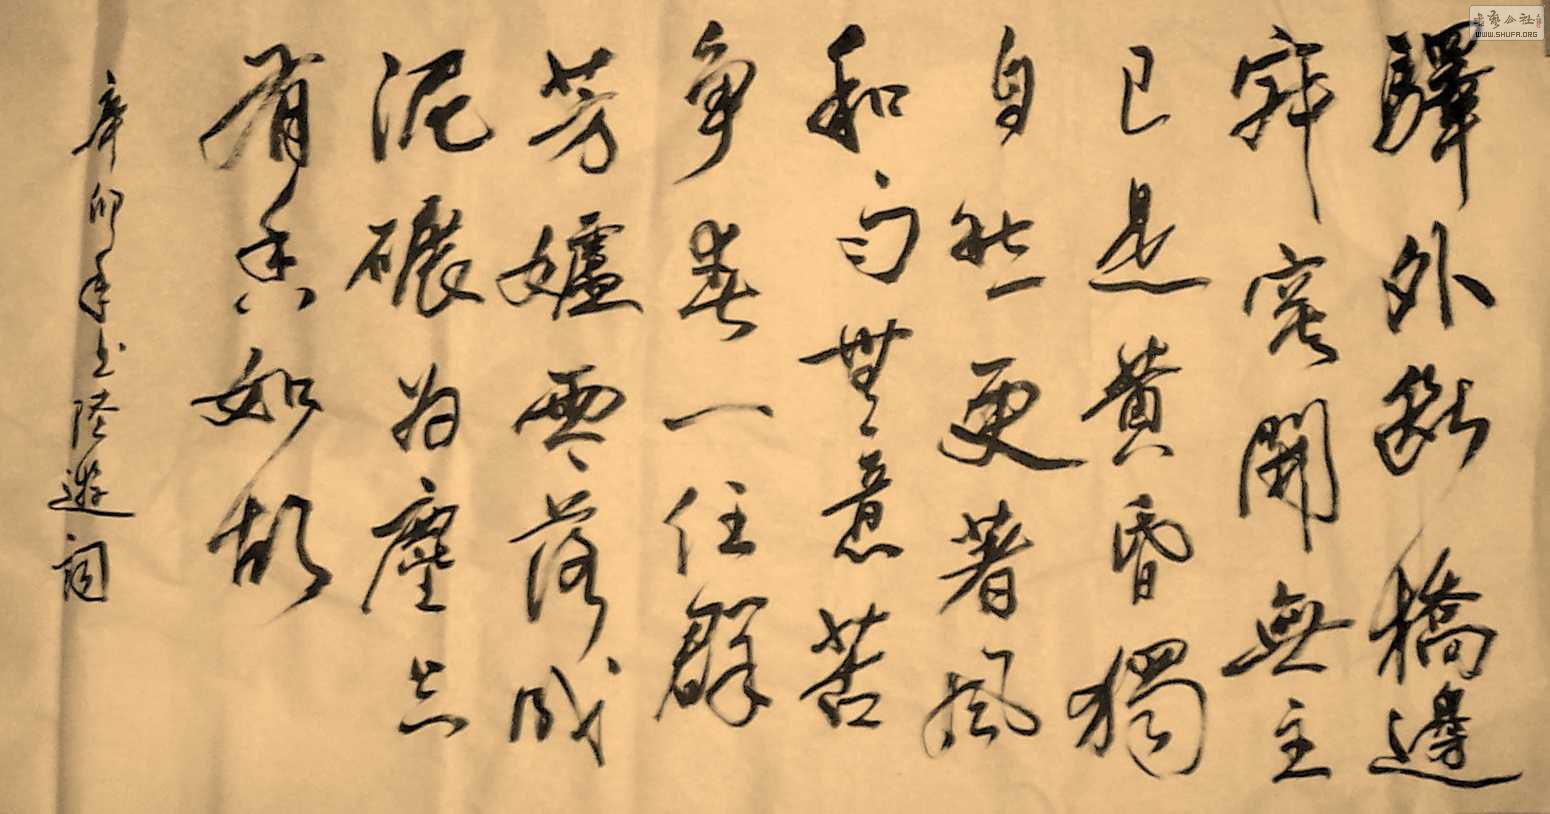 驛外斷橋邊
寂寞開無主
已是黄昏獨
自愁更著風
和雨無意苦
争春一任群
芳妒零落成
泥碾为塵只
有香如故
辛卯年书陸遊詞
書藝公社
WWW.SHUFA.ORG